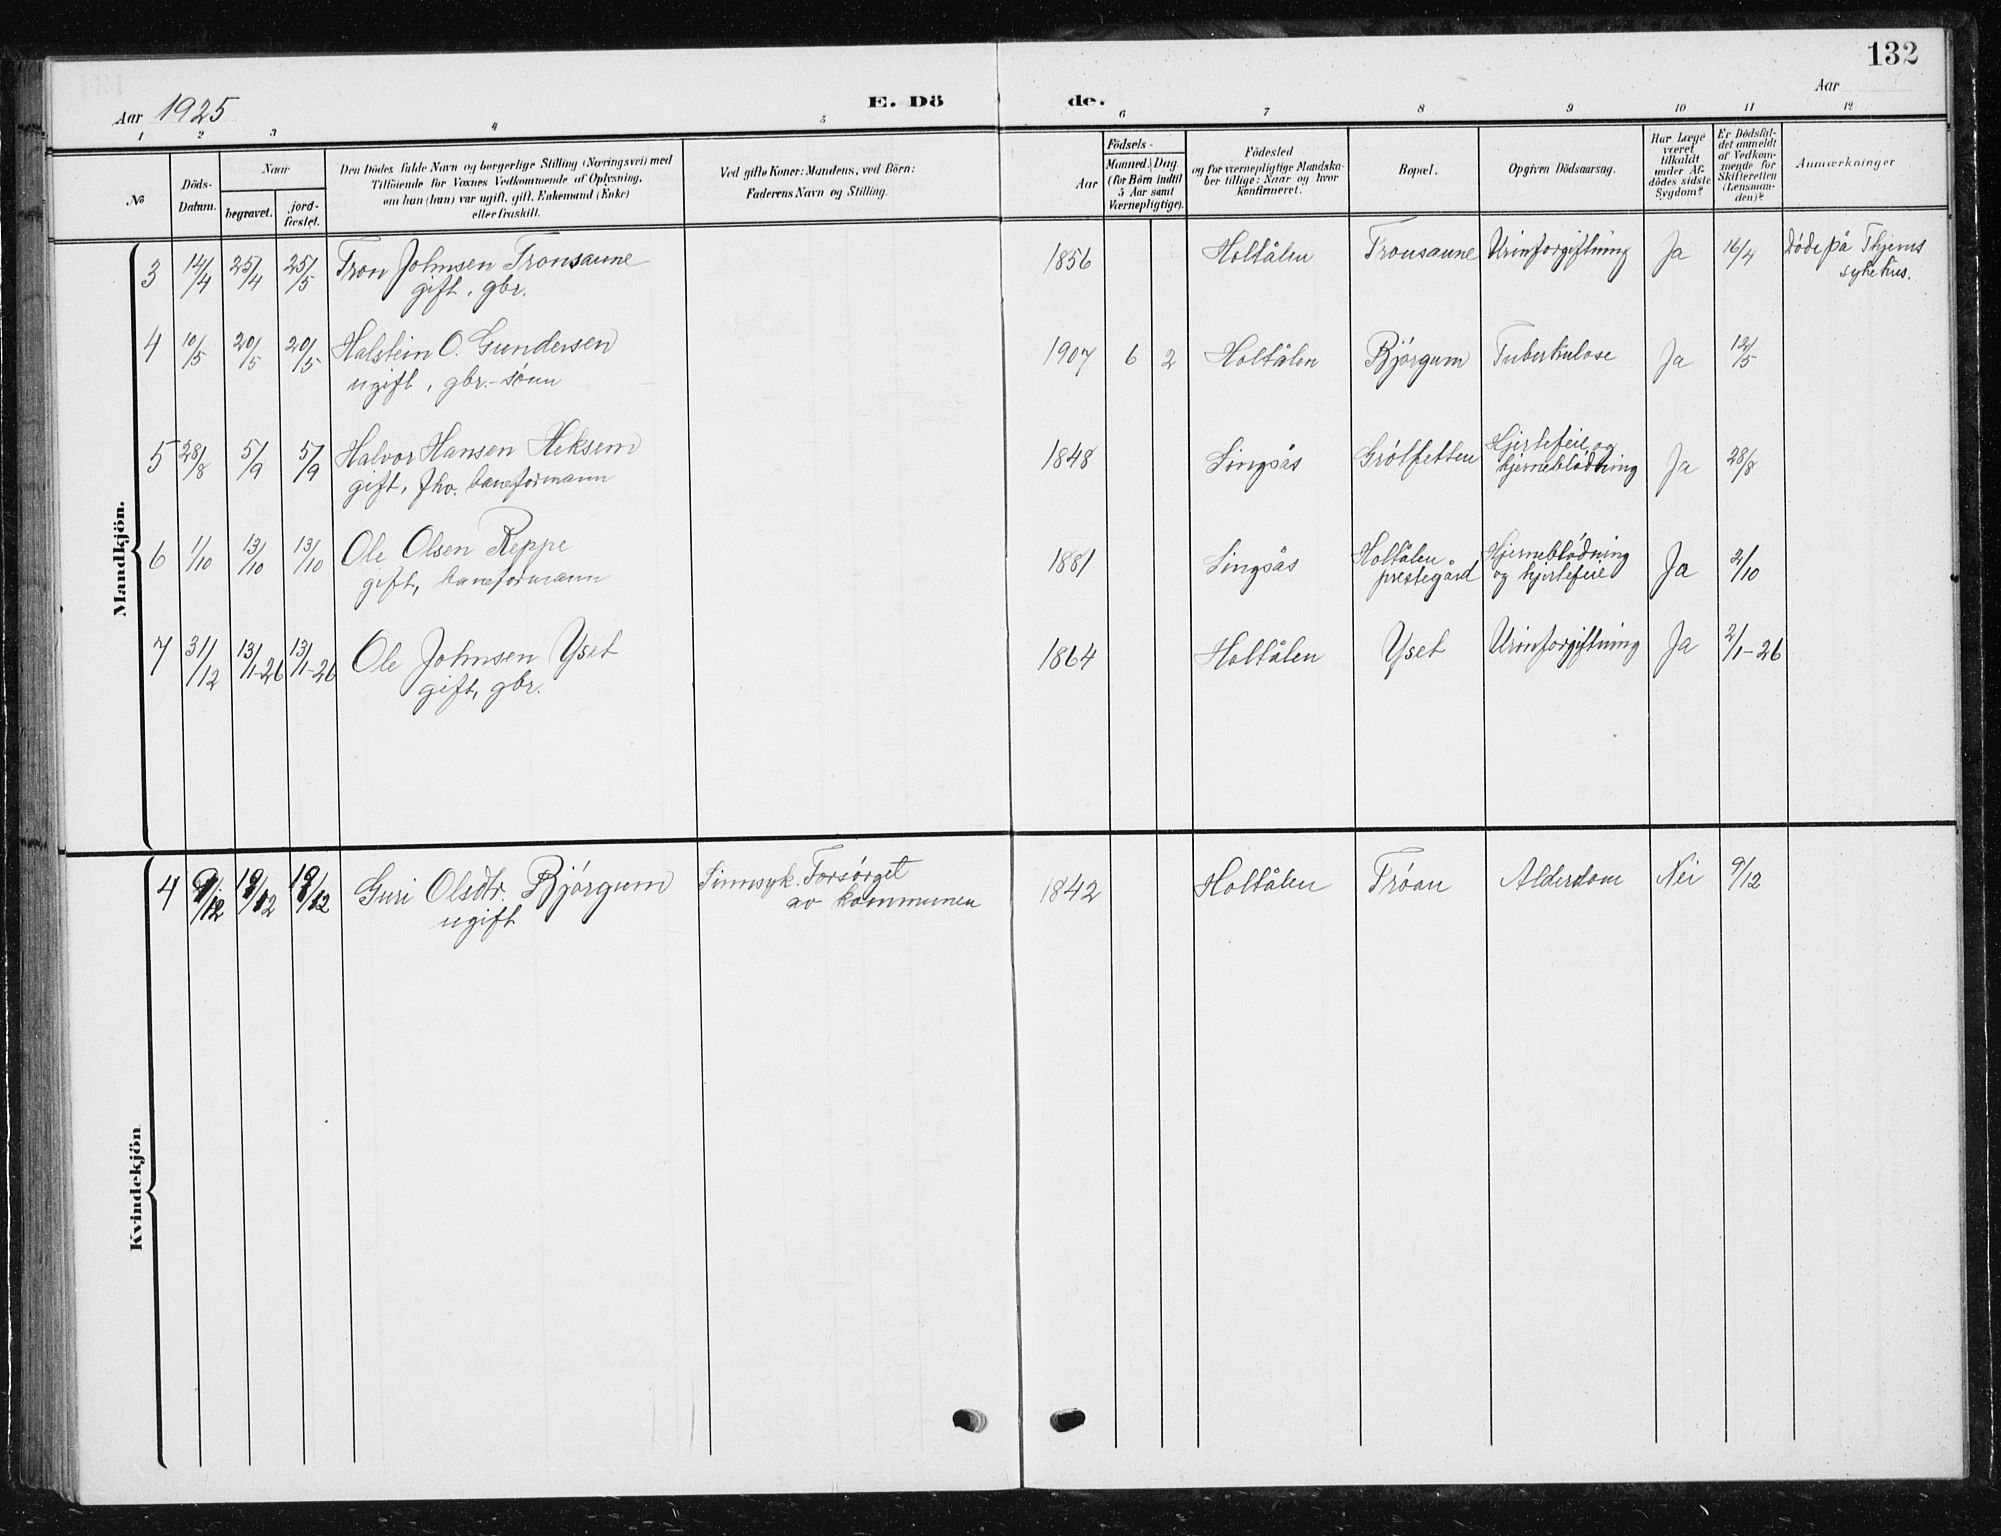 132
Aar 1925
E. Dö de.
Aar
1 2 3 4 5 6 7 8 9 10 11 12
№
Döds-
Datum.
Naar
begravet.
jord-
fæstet.
Den Dödes fulde Navn og borgerlige Stilling (Næringsvei) med
Tilföiende for Voxnes Vedkommende af Oplysning,
om hun (han) var ugift, gift, Enkemand (Enke)
eller fraskilt.
Ved gifte Koner: Mandens, ved Börn:
Faderens Navn og Stilling.
Aar
Födsels-
Maaned. Dag
(for Börn indtil
5 Aar samt
Værnepligtige).
Födested
og for værnepligtige Mandska-
ber tillige: Naar og hvor
konfirmeret.
Bopæl.
Opgiven Dödsaarsag.
Har Læge
været
tilkaldt
under Af-
dödes sidste
Sygdom?
Er Dödsfal-
det anmeldt
af Vedkom-
mende for
Skifteretten
(Lensman-
den)?
Anmærkninger
Mandkjön.
3 14/4 25/4 25/5 Tron Johnsen Tronsaune 1856 Holtålen Tronsaune Urinforgiftning Ja 16/4 Døde på Thjems
gift, gbr. sykehus.
4 10/5 20/5 20/5 Halstein O. Gundersen 1907 6 2 Holtålen Bjørgum Tuberkulose Ja 12/5
ugift, gbr.-sønn
5 28/8 5/9 5/9 Halvor Hansen Heksem 1848 Singsås Grøtfetten Hjertefeil og Ja 28/8
gift, fhv. baneformann hjerneblødning
6 1/10 13/10 13/10 Ole Olsen Reppe 1881 Singsås Holtålen Hjerneblødning Ja 2/10
gift, baneformann prestegård og hjertefeil
7 31/12 13/1-26 13/1-26 Ole Johnsen Yset 1864 Holtålen Yset Urinforgiftning Ja 2/1-26
gift, gbr.
Kvindekjön
4 9/12 19/12 19/12 Guri Olsdtr. Bjørgum Sinnsyk. Forsørget 1842 Holtålen Trøan Alderdom Nei 9/12
ugift av kommunen